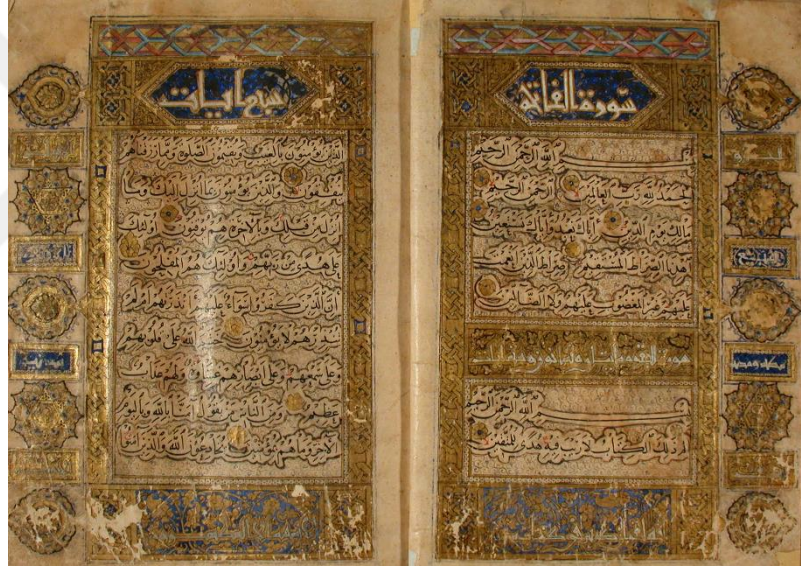 سورة الفاتحة
بسم الله الرحمن الرحيم
الحمد لله رب العالمين الرحمن الرحيم
مالك يوم الدين اياك نعبد واياك نستعين
اهدنا الصراط المستقيم صراط الذين انعمت
عليهم غير المغضوب عليهم ولا الضالين
بسم الله الرحمن الرحيم
الم ذلك الكتاب لا ريب فيه هدى للمتقين
سبع ايات
الذين يؤمنون بالغيب ويقيمون الصلوة ومما رزقناهم
ينفقون والذين يؤمنون بما انزل اليك وما
انزل من قبلك وبالاخرة هم يوقنون اولئك
على هدى من ربهم واولئك هم المفلحون
ان الذين كفروا سواء عليهم ءانذرتهم ام لم
تنذرهم لا يؤمنون ختم الله على قلوبهم
وعلى سمعهم وعلى ابصارهم غشاوة ولهم عذاب
عظيم ومن الناس من يقول امنا بالله وباليوم
الاخر وما هم بمؤمنين يخادعون الله والذين امنوا